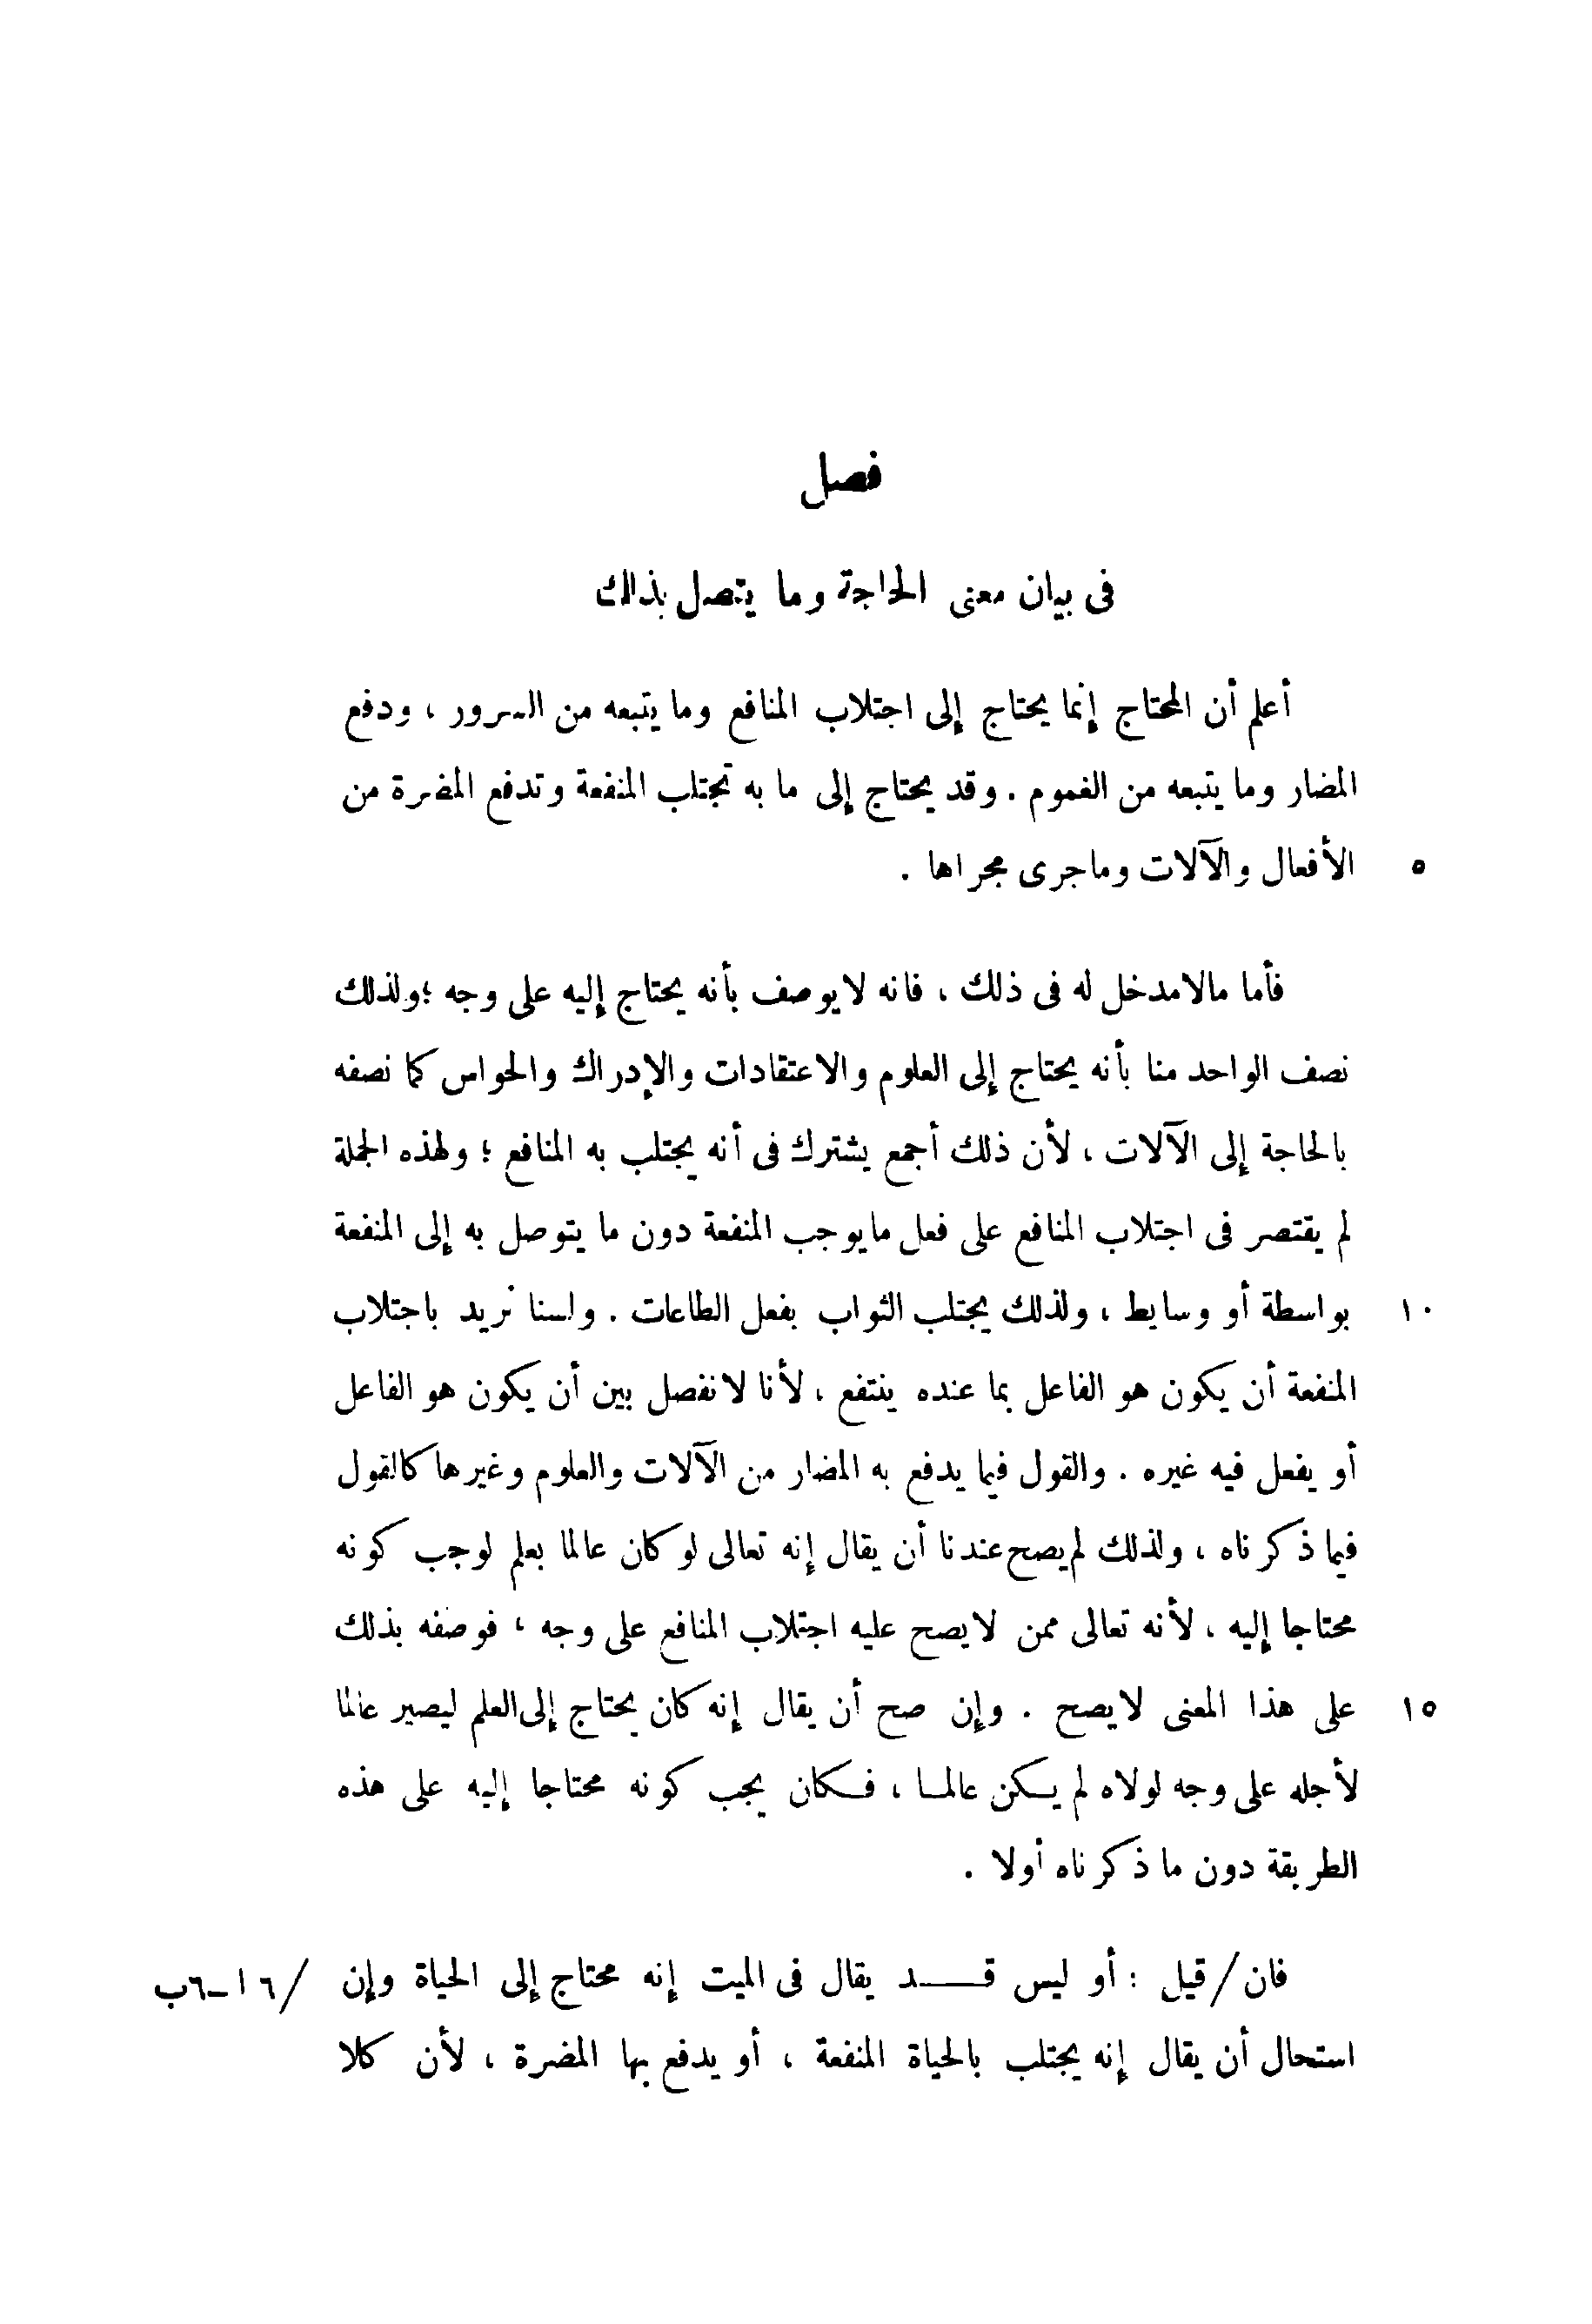 فصل
فى بيان معنى الحاجة وما يتصل بذلك
أعلم أن المحتاج إنما يحتاج إلى اجتلاب المنافع وما يتبعه من السرور ، ودفع
المضار وما يتبعه من الغموم . وقد يحتاج إلى ما به تجتلب المنفعة وتدفع المضرة من
٥ الأفعال والآلات وماجرى مجراها .
فأما مالامدخل له فى ذلك ، فانه لا يوصف بأنه يحتاج إليه على وجه ؛ ولذلك
نصف الواحد منا بأنه يحتاج إلى العلوم والاعتقادات والإدراك والحواس كما نصفه
بالحاجة إلى الآلات ، لأن ذلك أجمع يشترك فى أنه يجتلب به المنافع ؛ ولهذه الجملة
لم يقتصر فى اجتلاب المنافع على فعل ما يوجب المنفعة دون ما يتوصل به إلى المنفعة
١٠ بواسطة أو وسايط ، ولذلك يجتلب الثواب بفعل الطاعات . ولسنا نريد باجتلاب
المنفعة أن يكون هو الفاعل بما عنده ينتفع ، لأنا لا نفصل بين أن يكون هو الفاعل
أو يفعل فيه غيره . والقول فيما يدفع به المضار من الآلات والعلوم وغيرها كالقول
فيما ذكرناه ، ولذلك لم يصح عندنا أن يقال إنه تعالى لو كان عالما بعلم لوجب كونه
محتاجا إليه ، لأنه تعالى ممن لا يصح عليه اجتلاب المنافع على وجه ، فوصفه بذلك
١٥ على هذا المعنى لا يصح . وإن صح أن يقال إنه كان يحتاج إلى العلم ليصير عالما
لأجله على وجه لولاه لم يـكن عالمـا ، فـكان يجب كونه محتاجا إليه على هذه
الطريقة دون ما ذكرناه أولا .
فان / قيل : أو ليس قـــد يقال فى الميت إنه محتاج إلى الحياة وإن / ١٦-٦ب
استحال أن يقال إنه يجتلب بالحياة المنفعة ، أو يدفع بها المضرة ، لأن كلا